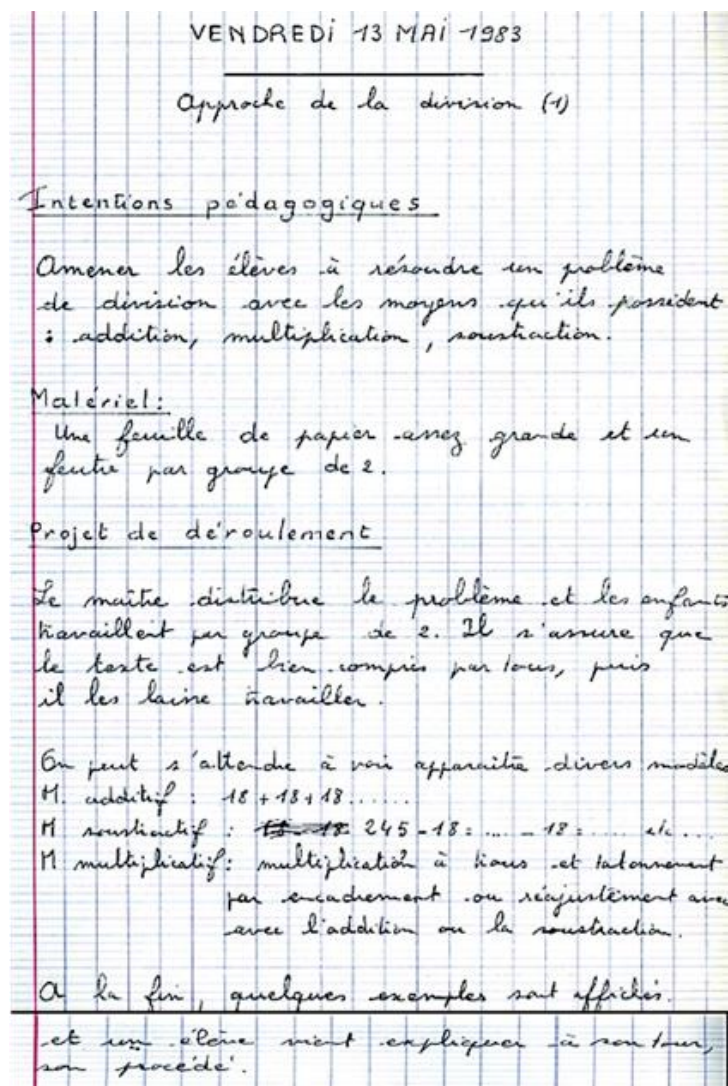 VENDREDi 13 MAi 1983
Approche de la division (1)
Intentions pédagogiques
Amener les élèves à résoudre un problème
de division avec les moyens qu'ils possèdent
: addition, multiplication, soustraction.
Matériel:
Une feuille de papier assez grande et un
feutre par groupe de 2.
Projet de déroulement
Le maître distribue le problème et les enfants
travaillent par groupe de 2. Il s'assure que
le texte est bien compris par tous, puis
il les laisse travailler.
On peut s'attendre à voir apparaître divers modèles
M. additif : 18 + 18 + 18......
M soustractif : 245 - 18 = .... - 18 = ..... etc...
M multiplicatif : multiplication à trous et tatonnement
par encadrement ou réajustement avec
avec l'addition ou la soustraction.
A la fin, quelques exemples sont affichés.
et un élève vient expliquer à son tour,
son procédé.